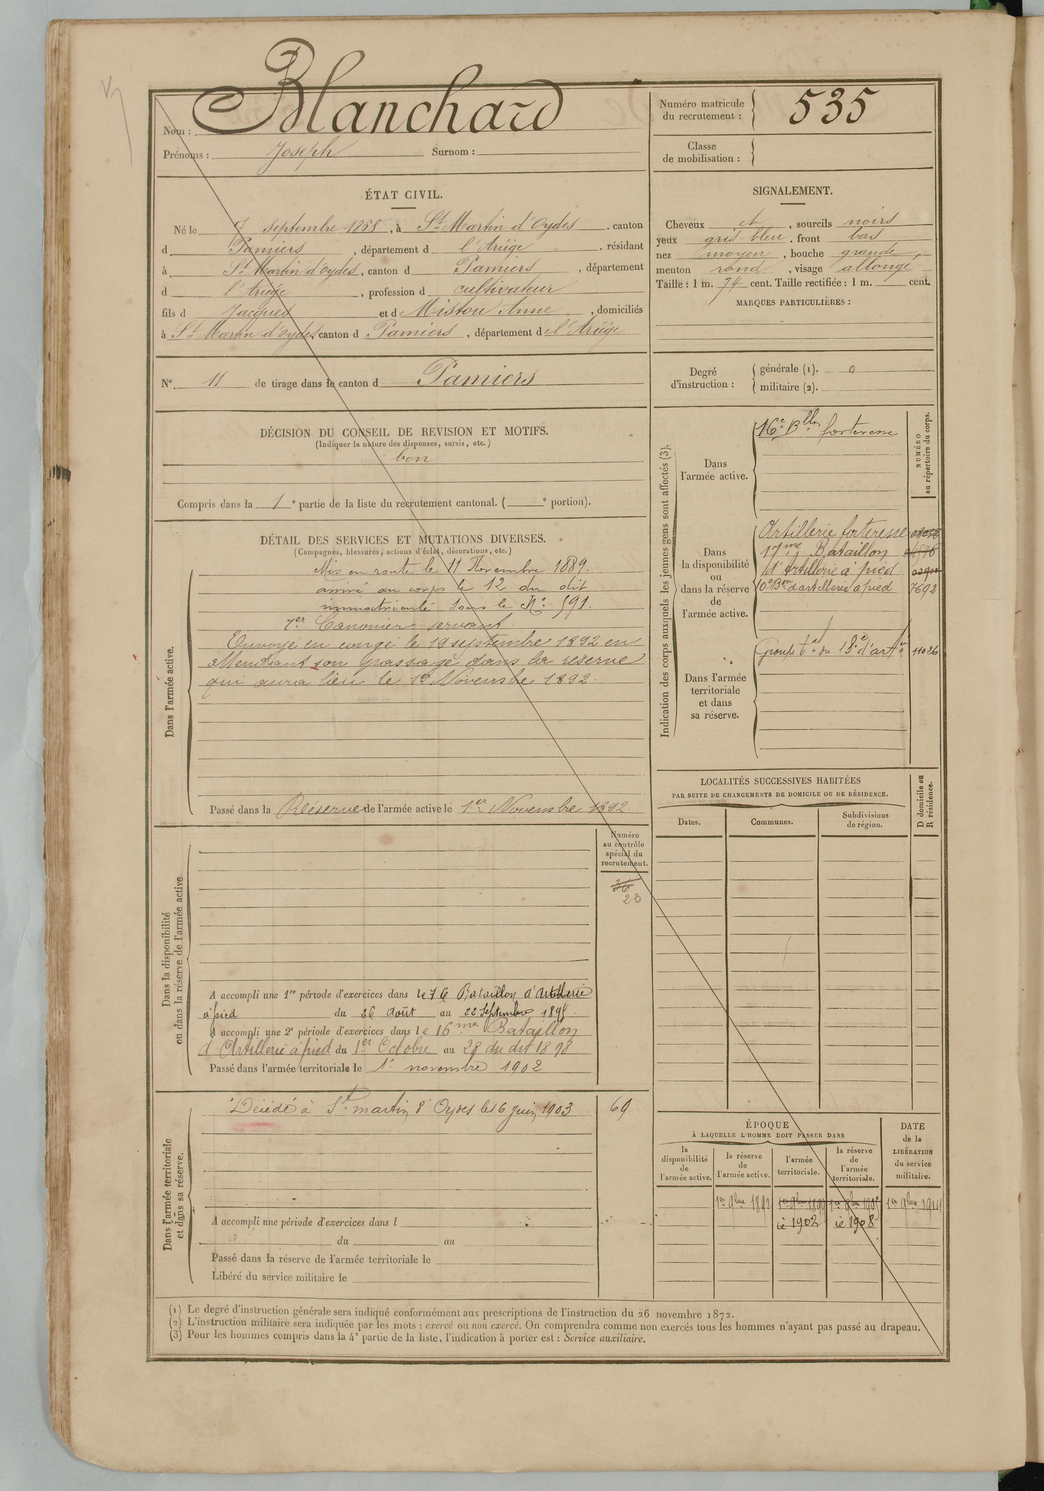 Nom : Blanchard
Prénoms : Joseph Surnom :
Numéro matricule du recrutement : 535
Classe de mobilisation :
ÉTAT CIVIL.
Né le 7 septembre 1868, à St Martin d'Oydes, canton
d Pamiers, département d l'Ariège, résidant
à St Martin d'Oydes, canton d Pamiers, département
d l'Ariège, profession d cultivateur
fils d Jacques et d Mistou Anne, domiciliés
à St Martin d'Oydes, canton d Pamiers, département d l'Ariège
N° 11 de tirage dans le canton d Pamiers
SIGNALEMENT.
Cheveux et, sourcils noirs
yeux gris-bleu, front bas
nez moyen, bouche grande,
menton rond, visage allongé
Taille : 1 m. 74 cent. Taille rectifiée : 1 m. cent.
MARQUES PARTICULIÈRES :
Degré d'instruction : générale (1). 0
militaire (2).
DÉCISION DU CONSEIL DE REVISION ET MOTIFS.
(Indiquer la nature des dispenses, sursis, etc.)
bon
Compris dans la 1e partie de la liste du recrutement cantonal. ( e portion).
DÉTAIL DES SERVICES ET MUTATIONS DIVERSES.
(Campagnes, blessures, actions d'éclat, décorations, etc.)
Dans l'armée active.
Mis en route le 11 Novembre 1889.
arrivé au corps le 12 du dit
immatriculé sous le N° 591.
Canonnier servant
Envoyé en congé le 19 septembre 1892 en
attendant son passage dans la réserve
qui aura lieu le 1er Novembre 1892.
Passé dans la Réserve de l'armée active le 1er Novembre 1892
Indication des corps auxquels les jeunes gens sont affectés (3).
NUMÉRO au répertoire du corps.
Dans l'armée active.
16e Bllon forteresse
Dans la disponibilité ou dans la réserve de l'armée active.
Artillerie forteresse
17me Bataillon
d'Artillerie à pied
10e Bon d'artillerie à pied 7692
Dans l'armée territoriale et dans sa réserve.
Groupe du 18e d'artie 11026
LOCALITÉS SUCCESSIVES HABITÉES
PAR SUITE DE CHANGEMENTS DE DOMICILE OU DE RÉSIDENCE.
Dates. Communes. Subdivisions de région. D domicile ou R résidence.
Dans la disponibilité ou dans la réserve de l'armée active.
Numéro au contrôle spécial du recrutement.
36
23
A accompli une 1re période d'exercices dans le 16 Bataillon d'Artillerie
à pied du 26 août au 22 septembre 1895.
A accompli une 2e période d'exercices dans le 16me Bataillon
d'Artillerie à pied du 1er Octobre au 28 du dit 1898
Passé dans l'armée territoriale le 1er novembre 1902
Dans l'armée territoriale et dans sa réserve.
Décédé à St martin d'Oydes le 6 juin 1903 69
A accompli une période d'exercices dans l
du au
Passé dans la réserve de l'armée territoriale le
Libéré du service militaire le
ÉPOQUE
À LAQUELLE L'HOMME DOIT PASSER DANS
la disponibilité de l'armée active.
la réserve de l'armée active.
l'armée territoriale.
la réserve de l'armée territoriale.
DATE de la LIBÉRATION du service militaire.
1er 9bre 1892 1er 9bre 1899 1er 9bre 1905 1er 9bre 1914
1902 1908
(1) Le degré d'instruction générale sera indiqué conformément aux prescriptions de l'instruction du 26 novembre 1872.
(2) L'instruction militaire sera indiquée par les mots : exercé ou non exercé. On comprendra comme non exercés tous les hommes n'ayant pas passé au drapeau.
(3) Pour les hommes compris dans la 4e partie de la liste, l'indication à porter est : Service auxiliaire.